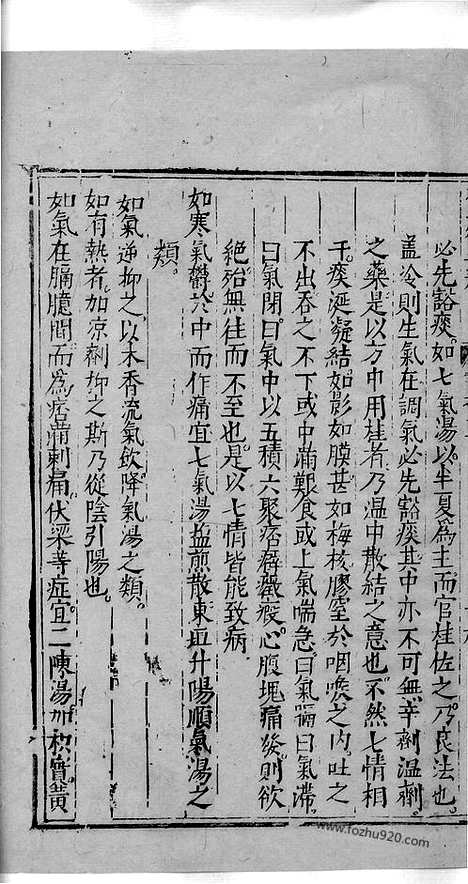 必先豁痰如七氣湯以半夏為主而官桂佐之乃良法也
盖冷則生氣在調氣必先豁痰其中亦不可無辛劑溫劑
之藥是以方中用桂者乃溫中散結之意也不然七情相
干痰涎凝結如影如膜甚如梅核膠窒於咽喉之内吐之
不出吞之不下或中滿艱食或上氣喘急曰氣嗝曰氣滯
曰氣閉曰氣中以五積六聚痞癖癥瘕心腹塊痛發則欲
絕殆無往而不至也是以七情皆能致病
如寒氣鬱於中而作痛宜七氣湯益煎散東垣升陽順氣湯之
類
如氣逆抑之以木香流氣飲降氣湯之類
如有熱者加凉劑抑之斯乃從陰引陽也
如氣在膈臆間而為痞滿刺痛伏梁等症宜二陳湯加枳實黄
www.fozhu920.com